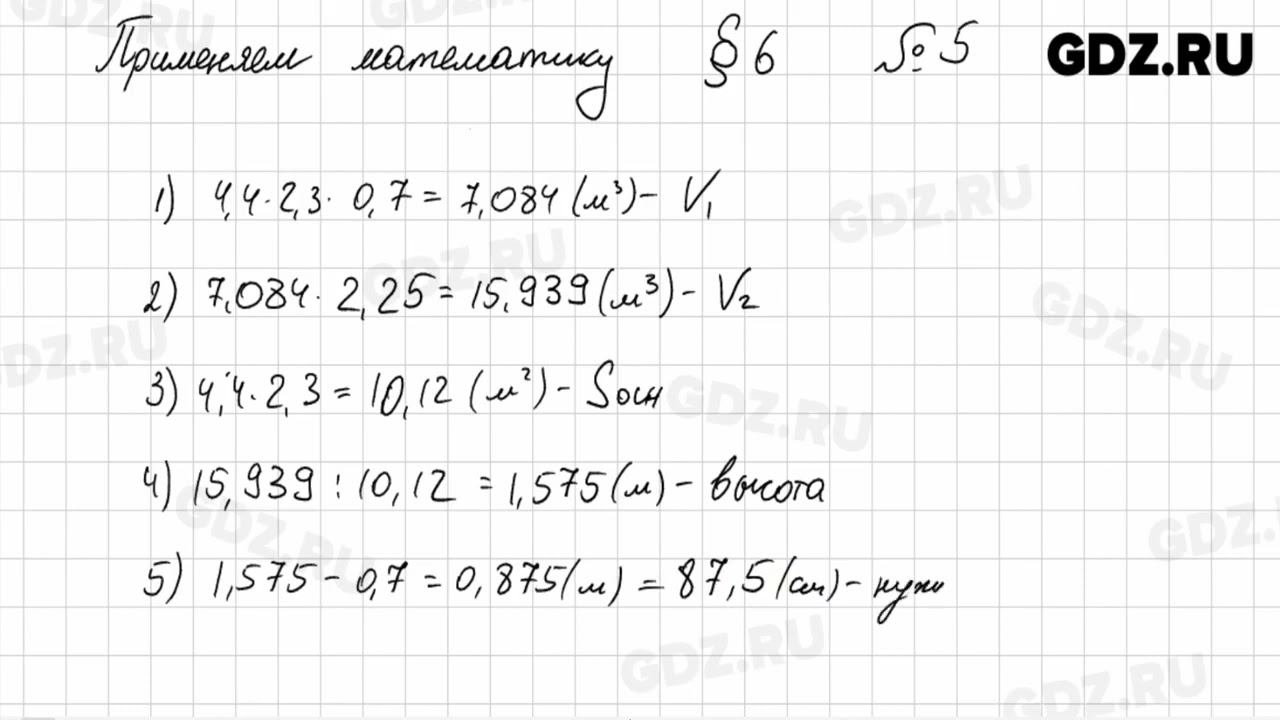 Применяем математику § 6 № 5 GDZ.RU
1) 4,4 · 2,3 · 0,7 = 7,084 (м³) – V₁
2) 7,084 · 2,25 = 15,939 (м³) – V₂
3) 4,4 · 2,3 = 10,12 (м²) – Sосн
4) 15,939 : 10,12 = 1,575 (м) – высота
5) 1,575 – 0,7 = 0,875 (м) = 87,5 (см) – нужно